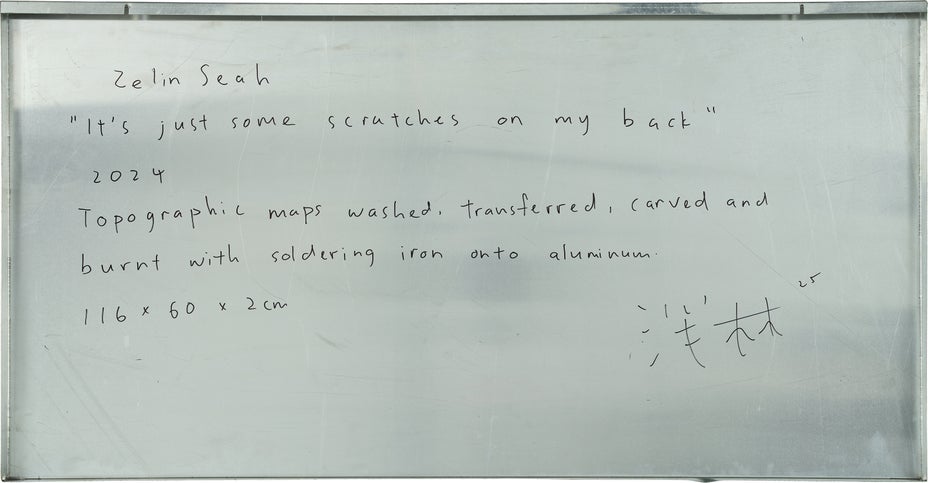 Zelin Seah
"It's just some scratches on my back"
2024
Topographic maps washed, transferred, carved and
burnt with soldering iron onto aluminum.
116 x 60 x 2cm
林 25